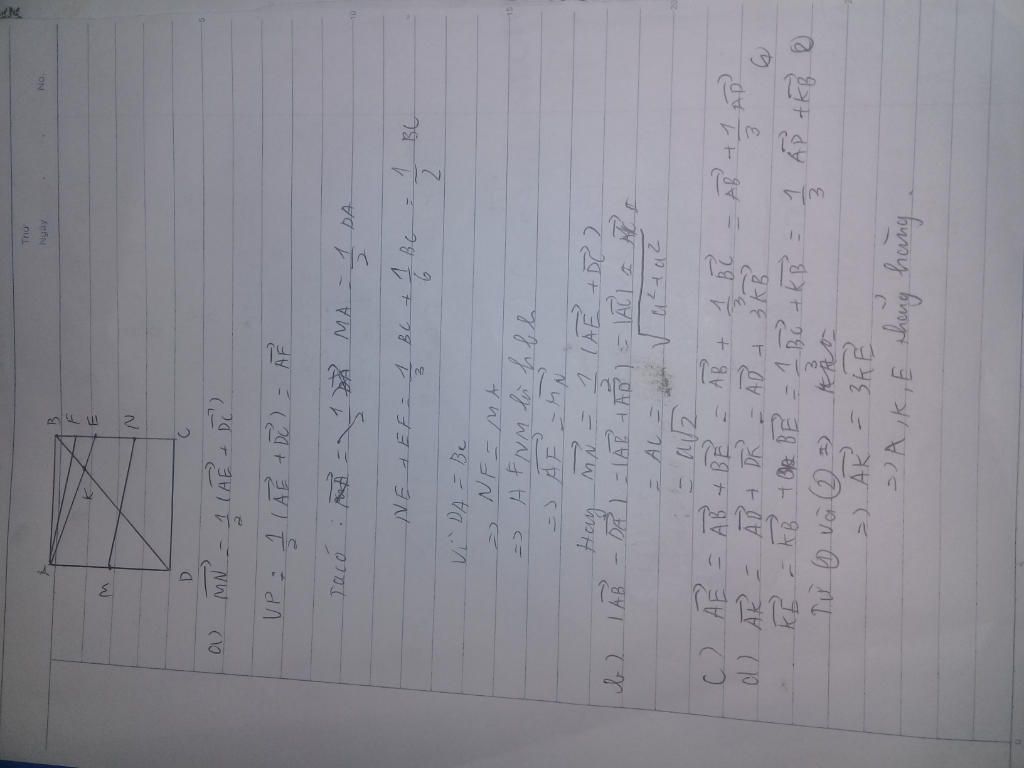 Thứ
Ngày
No.
A
B
F
E
K
M
N
D
C
a) MN→ = 1/2 (AE→ + DC→)
VP = 1/2 (AE→ + DC→) = AF→
Ta có : MA = 1/2 DA
NE + EF = 1/3 BC + 1/6 BC = 1/2 BC
Vì DA = BC
=> NF = MA
=> AFNM là hbh
=> AF→ = MN→
Hay MN→ = 1/2 (AE→ + DC→)
b) |AB→ - DA→| = |AB→ + AD→| = |AC→|
= AC = √a² + a²
= a√2
c) AE→ = AB→ + BE→ = AB→ + 1/3 BC→ = AB→ + 1/3 AD→
d) AK→ = AD→ + DK→ = AD→ + 3KB→ (1)
KE→ = KB→ + BE→ = 1/3 BC→ + KB→ = 1/3 AD→ + KB→ (2)
Từ (1) và (2) =>
=> AK→ = 3KE→
=> A, K, E thẳng hàng.